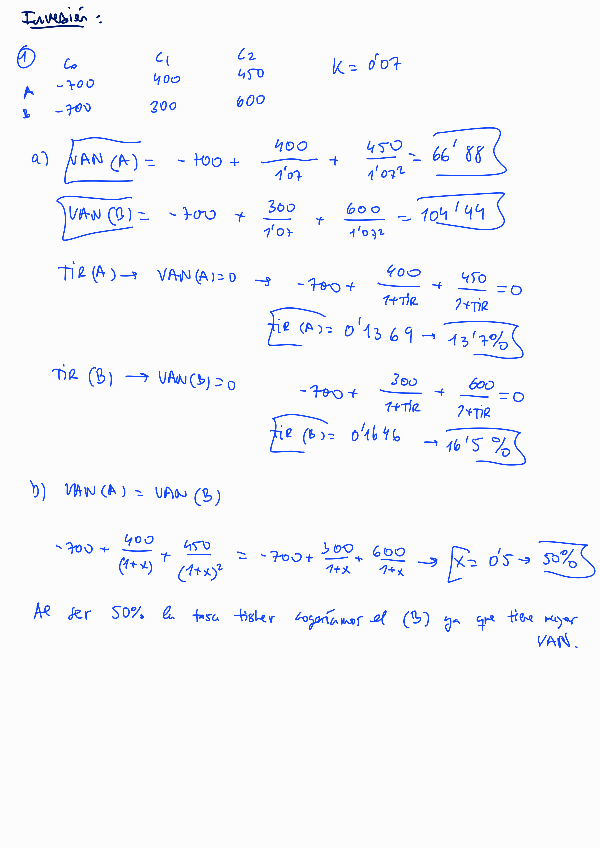 Inversión:
① C0 C1 C2 K = 0'07
A -700 400 450
B -700 300 600
a) VAN (A) = -700 + 400/1'07 + 450/1'07² = 66'88
VAN (B) = -700 + 300/1'07 + 600/1'07² = 104'44
TiR (A) → VAN (A) = 0 → -700 + 400/1+TiR + 450/1+TiR = 0
TiR (A) = 0'1369 → 13'7%
TiR (B) → VAN (B) = 0 -700 + 300/1+TiR + 600/1+TiR = 0
TiR (B) = 0'1646 → 16'5%
b) VAN (A) = VAN (B)
-700 + 400/(1+x) + 450/(1+x)² = -700 + 300/1+x + 600/1+x → x = 0'5 → 50%
Al ser 50% la tasa fisher cogeríamos el (B) ya que tiene mayor
VAN.